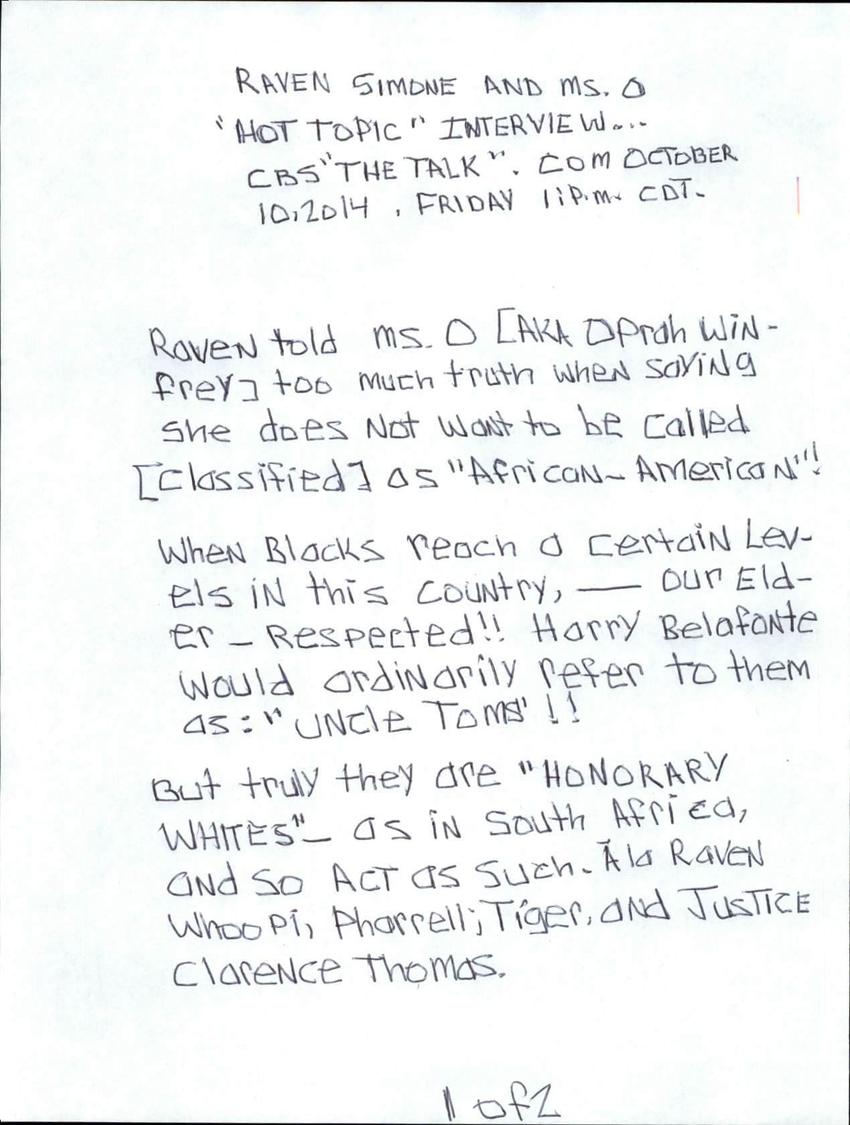 RAVEN SIMONE AND MS. O
"HOT TOPIC" INTERVIEW...
CBS "THE TALK". COM OCTOBER
10,2014, FRIDAY 11P.M. CDT.
Raven told MS. O [AKA Oprah WiN-
frey] too much truth when saying
she does Not want to be called
[Classified] as "African-American"!
When Blacks reach a certain Lev-
els iN this country, — our Eld-
er - Respected!! Harry Belafonte
would ordinarily refer to them
as: "UNcle Toms"!!
But truly they are "HONORARY
WHITES" - as iN South Africa,
and so ACT as such. Ála RaveN
Whoopi, Pharrell; Tiger, and JUSTICE
Clarence Thomas.
1 of 2